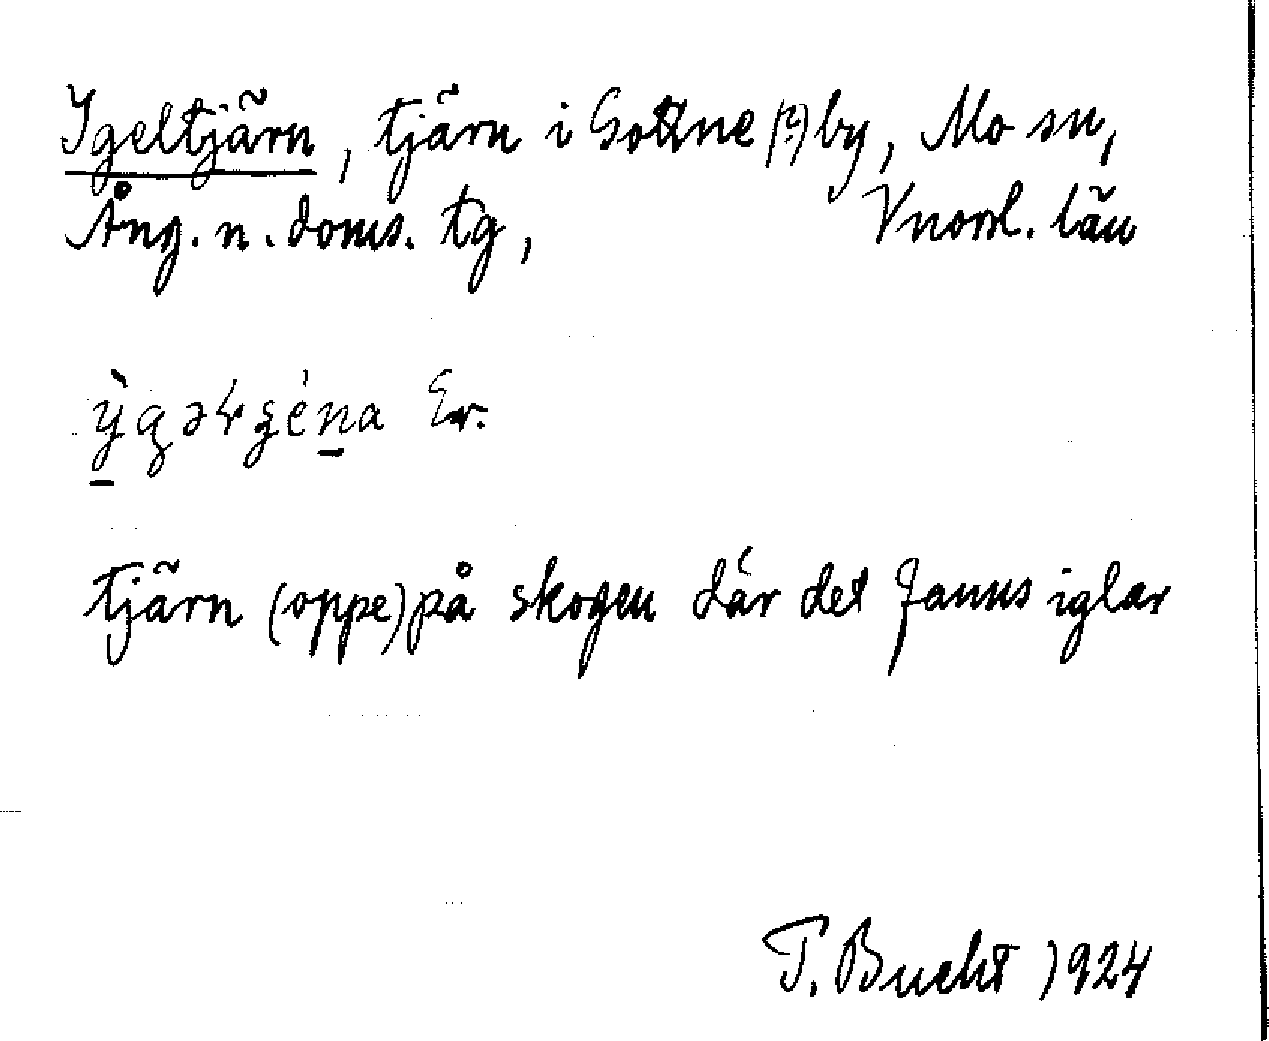 Igeltjärn, tjärn i Gottne (?) by, Mo sn,
Ång. n. doms. tg, Vnorrl. län
Er.
tjärn (oppe) på skogen där det fanns iglar
T. Bucht 1924